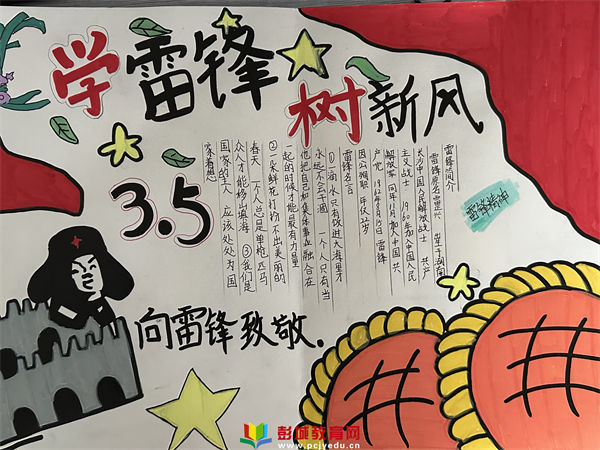 学雷锋
树新风
3.5
雷锋简介
雷锋原名雷正兴 生于湖南
长沙中国人民解放战士 共产
主义战士 1960年加入中国人民
解放军 同年11月加入中国共
产党 1962年8月15日 雷锋
因公殉职 年仅22岁
雷锋名言
①一滴水只有放进大海里才
永远不会干涸 一个人只有当
他把自己和集体事业融合在
一起的时候才能最有力量
②一朵鲜花打扮不出美丽的
春天 一个人总是单枪匹马
众人才能移山填海 ③我们是
国家的主人 应该处处为国
家着想
雷锋精神
向雷锋致敬.
彭城教育网
www.pcjyedu.cn